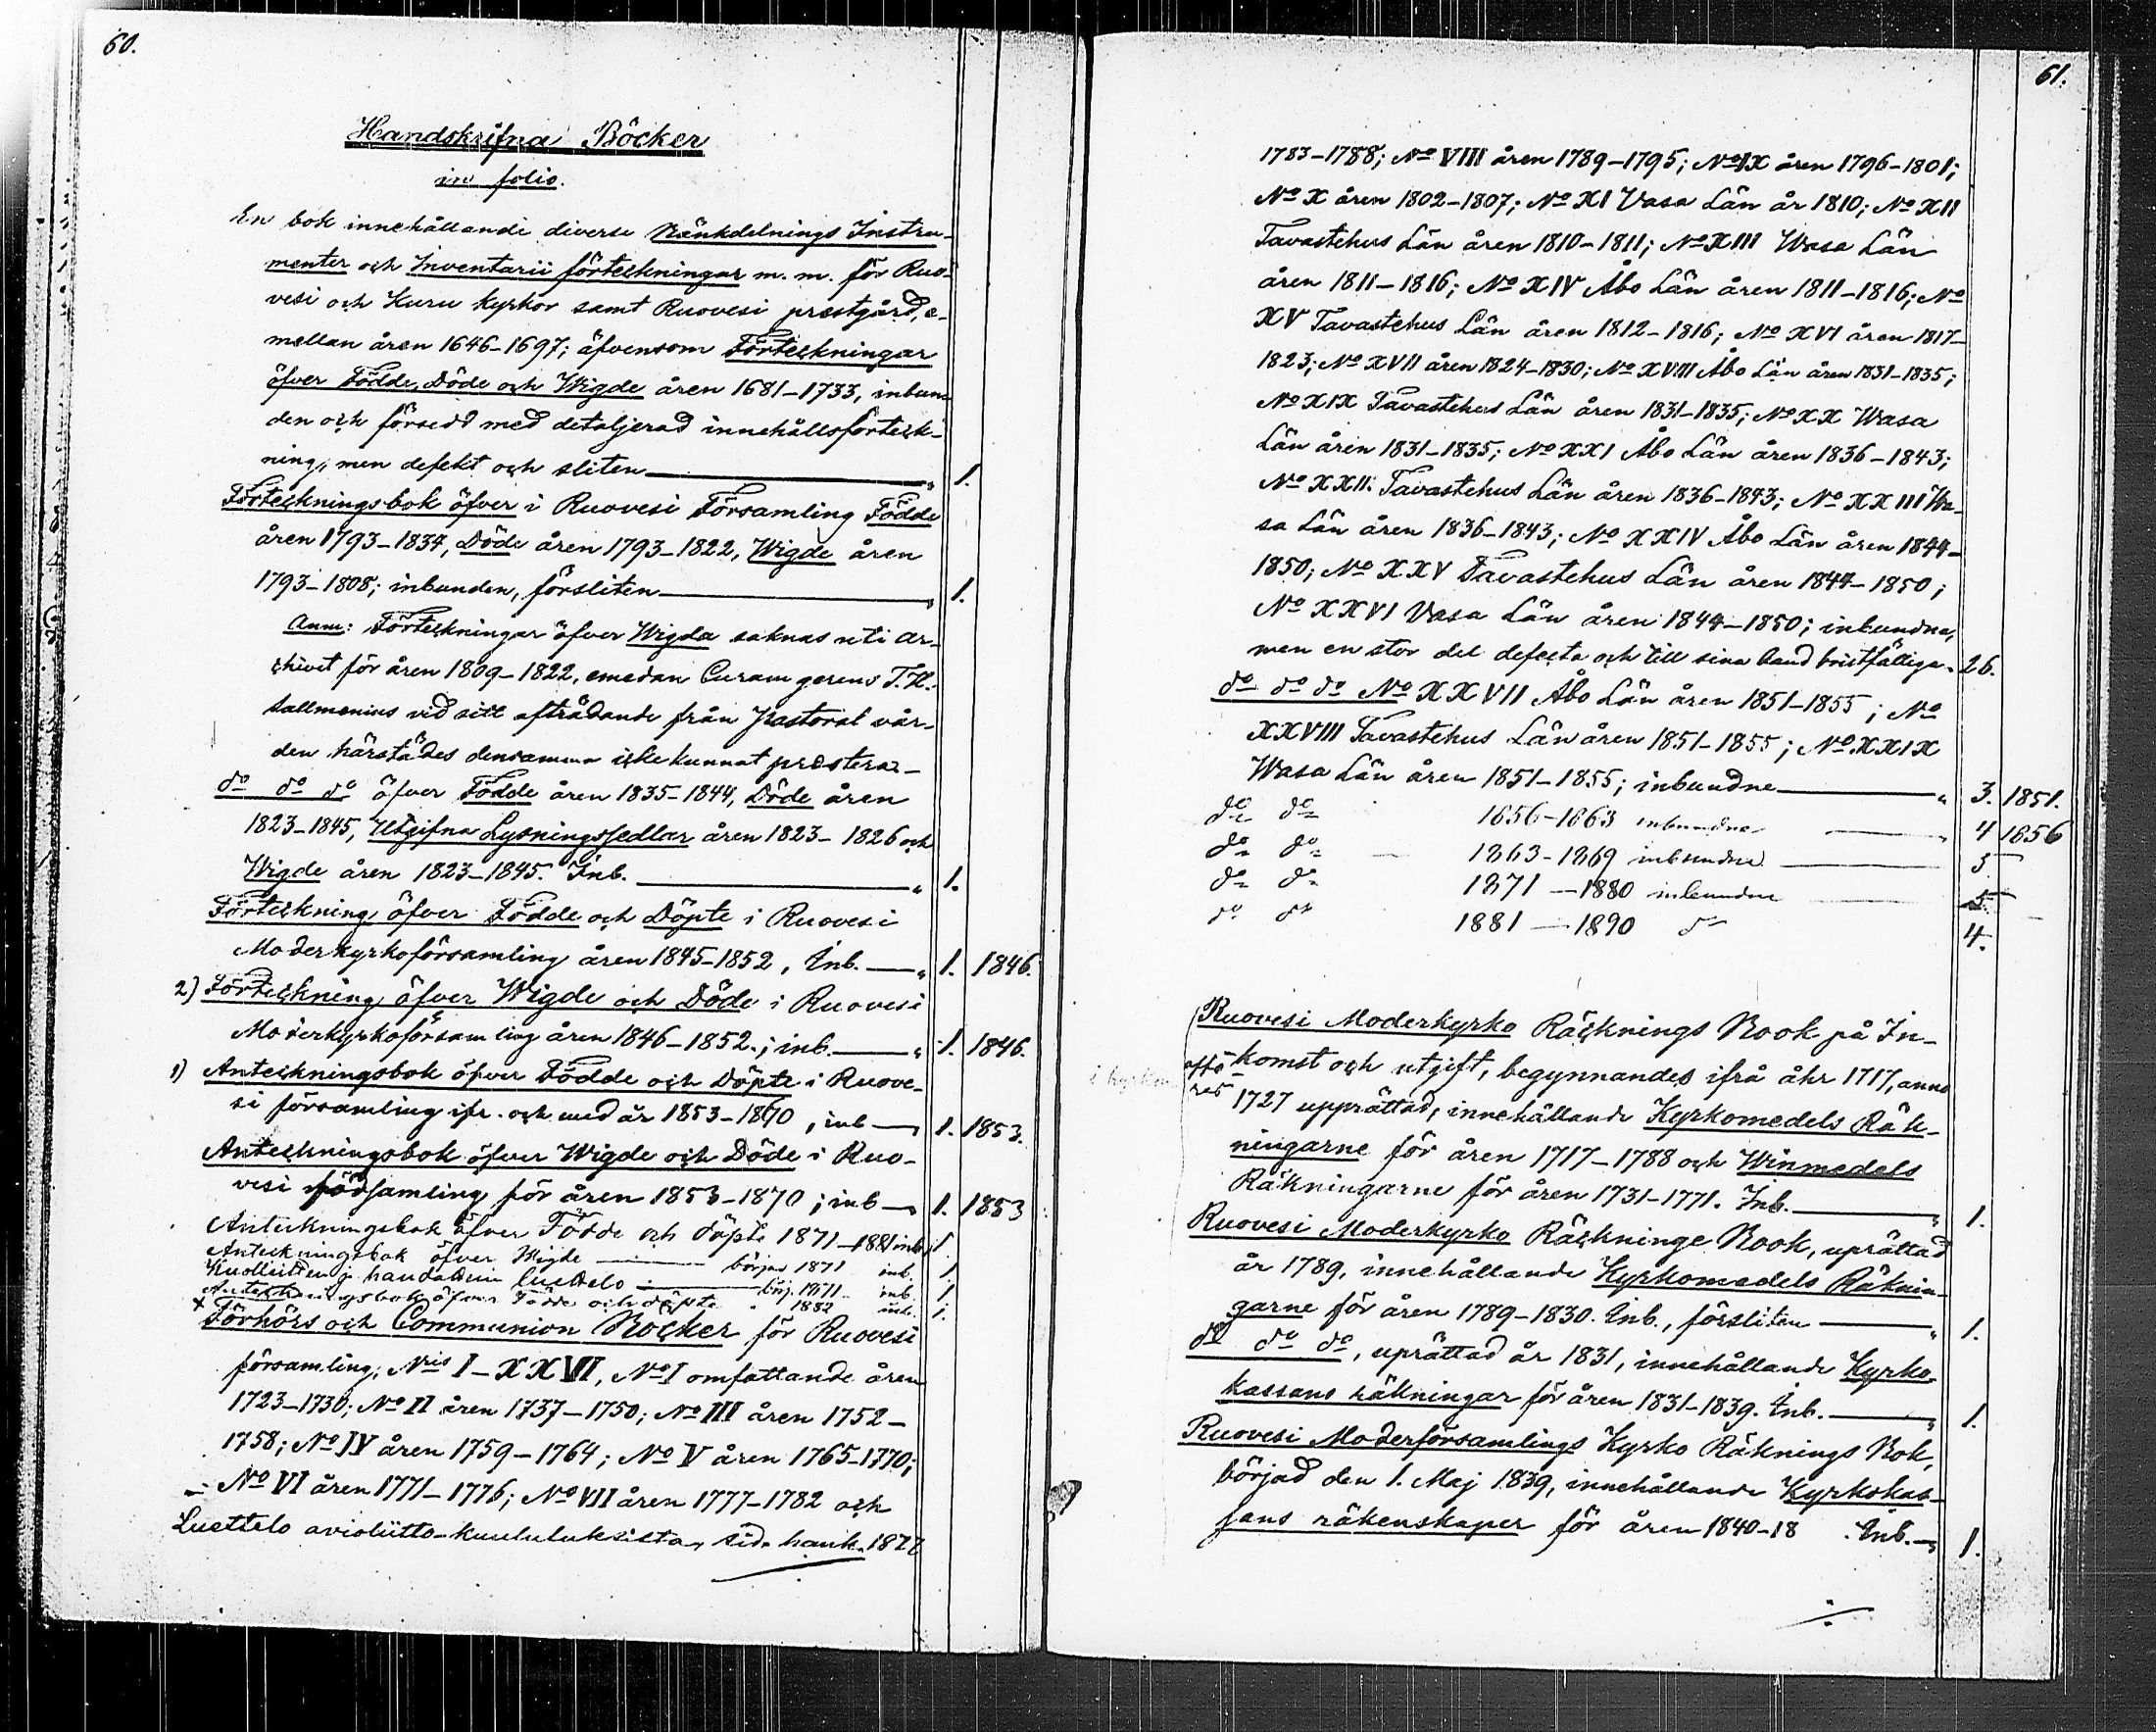 60.
Handskrifna Böcker
in folio.
En bok innehållande diverse Bänkdelnings Instru-
menter och Inventarii förteckningar m. m. för Ruo-
vesi och Kuru kyrkor samt Ruovesi prestgård, e-
mellan åren 1646-1697; äfvensom Förteckningar
öfver Födde, Döde och Wigde åren 1681-1733, inbun-
den och försedd med detaljerad innehållsförteck-
ning, men defekt och sliten 1.
Förteckningsbok öfver i Ruovesi Församling Födde
åren 1793-1834, Döde åren 1793-1822, Wigde åren
1793-1808; inbunden, försliten 1.
Anm: Förteckningar öfver Wigda saknas uti ar-
chivet för åren 1809-1822, emedan Curam gerens T. H.
Sallmenius vid sitt afträdande från Pastorat vår-
den härstädes densamma icke kunnat prestera.-
do do do öfver Födde åren 1835-1844, Döde åren
1823-1845, Utgifna Lysningssedlar åren 1823-1826 och
Wigde åren 1823-1845. Inb. 1.
Förteckning öfver Födde och Döpte i Ruovesi
Moderkyrkoförsamling åren 1845-1852, Inb. 1. 1846.
2) Förteckning öfver Wigde och Döde i Ruovesi
Moderkyrkoförsamling åren 1846-1852.; inb. 1. 1846.
1) Anteckningsbok öfver Födde och Döpte i Ruove-
si församling ifr. och med år 1853-1870, inb 1. 1853.
Anteckningsbok öfver Wigde och Döde i Ruo-
vesi församling för åren 1853-1870; inb 1. 1853
Anteckningsbok öfver Födde och döpte 1871-1881 inb 1.
Anteckningsbok öfver Wigde börjad 1871 inb. 1.
Kuolleitten ja haudattuin luettelo börj. 1871 inb. 1.
Anteckningsbok öfver Födde och döpte " 1882 inb. 1.
x Förhörs och Communion Böcker för Ruovesi
församling; Nris I-XXVI, No I omfattande åren
1723-1730; No II åren 1737-1750; No III åren 1752-
1758; No IV åren 1759-1764; No V åren 1765-1770;
No VI åren 1771-1776; No VII åren 1777-1782 och
Luettelo avioliitto-kuulutuksista, sid. hank. 1877
61.
1783-1788; No VIII åren 1789-1795; No IX åren 1796-1801;
No X åren 1802-1807; No XI Vasa Län år 1810; No XII
Tavastehus Län åren 1810-1811; No XIII Wasa Län
åren 1811-1816; No XIV Åbo Län åren 1811-1816; No
XV Tavastehus Län åren 1812-1816; No XVI åren 1817-
1823; No XVII åren 1824-1830; No XVIII Åbo Län åren 1831-1835;
No XIX Tavastehus Län åren 1831-1835; No XX Wasa
Län åren 1831-1835; No XXI Åbo Län åren 1836-1843;
No XXII. Tavastehus Län åren 1836-1843; No XXIII Wa-
sa Län åren 1836-1843; No XXIV Åbo Län åren 1844-
1850; No XXV Tavastehus Län åren 1844-1850;
No XXVI Vasa Län åren 1844-1850; inbundna,
men en stor del defecta och till sina band bristfälliga. 26.
do do do No XXVII Åbo Län åren 1851-1855; No
XXVIII Tavastehus Län åren 1851-1855; No XXIX
Wasa Län åren 1851-1855; inbundne 3. 1851.
do do 1856-1863 inbundna 4 1856
do do 1863-1869 inbundna 5
do do 1871-1880 inbundna 5
do do 1881-1890 do 4.
Ruovesi Moderkyrko Räcknings Book på In-
komst och utgift, begynnandes ifrå åhr 1717, anno
1727 upprättad, innehållande Kyrkomedels Räk-
ningarne för åren 1717-1788 och Winmedels
Räkningarne för åren 1731-1771. Inb. 1.
Ruovesi Moderkyrko Räckninge Book, uprättad
år 1789, innehållande Kyrkomedels Räknin-
garne för åren 1789-1830. Inb., försliten 1.
do do do, uprättad år 1831, innehållande Kyrko-
kassans räkningar för åren 1831-1839. Inb. 1.
Ruovesi Moderförsamlings Kyrko Räknings Bok,
börjad den 1. Maj 1839, innehållande Kyrkokas-
sans räkenskaper för åren 1840-18 . Inb. 1.